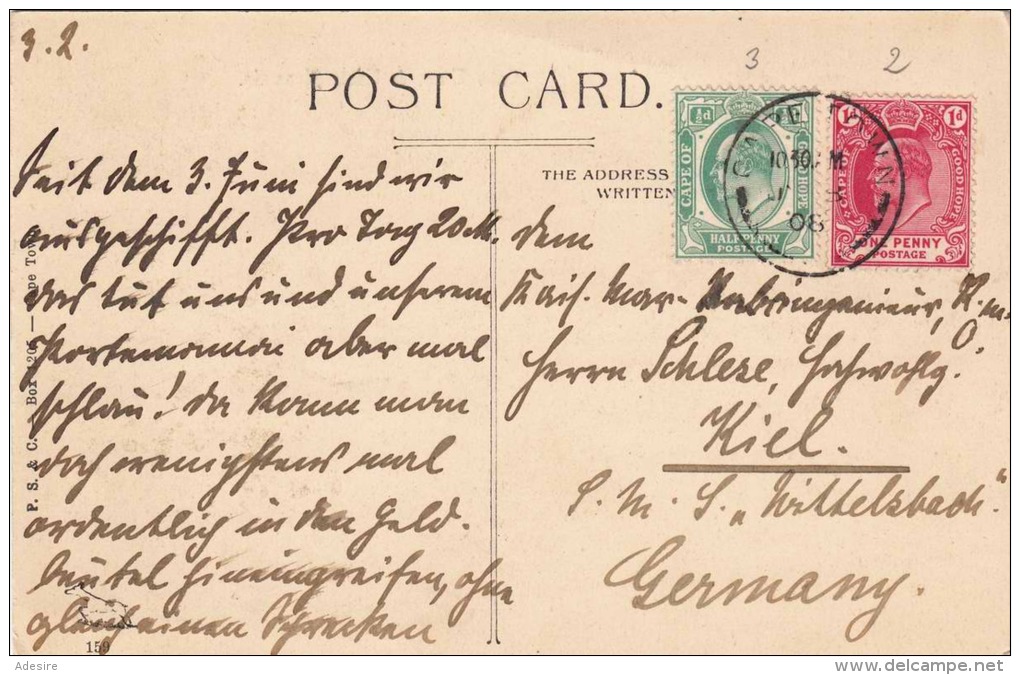 3.2.
3
2
POST CARD.
THE ADDRESS
WRITTEN
½d
CAPE OF GOOD HOPE
HALF PENNY
POSTAGE
1d 1d
CAPE OF GOOD HOPE
ONE PENNY
POSTAGE
CAPE TOWN
1030 M
08
Seit dem 3. Juni sind wir
ausgeschifft. Pro Tag 20 M.
das tut uns und unserem
Portemonnai aber mal
schlau! Da kann man
doch wenigstens mal
ordentlich in den Geld-
beutel hineingreifen, ohne
gleich einen Schrecken
dem
Kais. Mar-
Herrn Schleze, Hochwohlg.
Kiel.
S. M. S. „Wittelsbach“.
Germany.
P. S. & C. Box 1205 — Cape Town
159
Adesire
delcampe.net